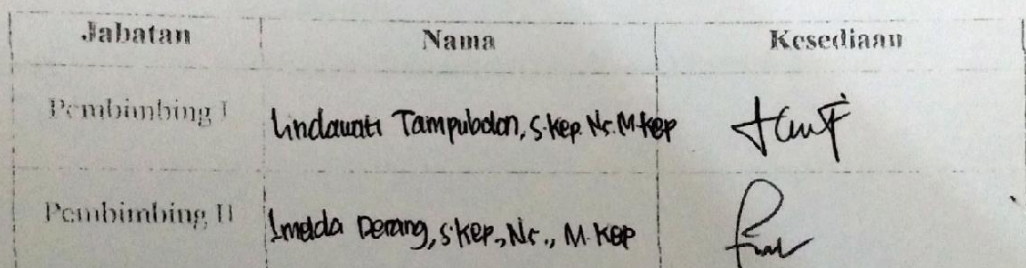 Jabatan Nama Kesediaan
Pembimbing I Lindawati Tampubolon, S.Kep. Ns. M.Kep
Pembimbing II Imelda Derang, S.Kep., Ns., M.Kep